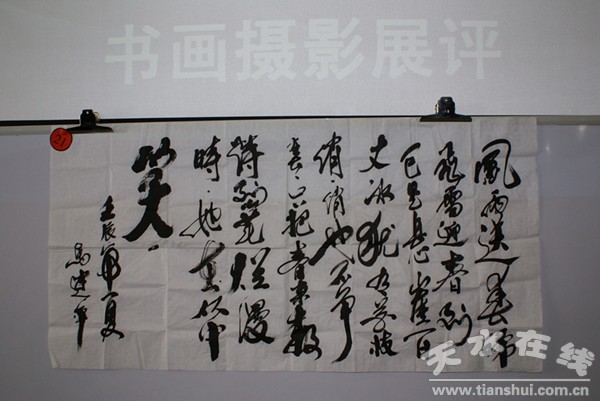 书画摄影展评
風雨送春歸
飛雪迎春到
已是悬崖百
丈冰犹有花枝
俏俏也不争
春只把春来報
待到山花爛漫
時她在丛中
笑
壬辰年夏
天水在线
www.tianshui.com.cn